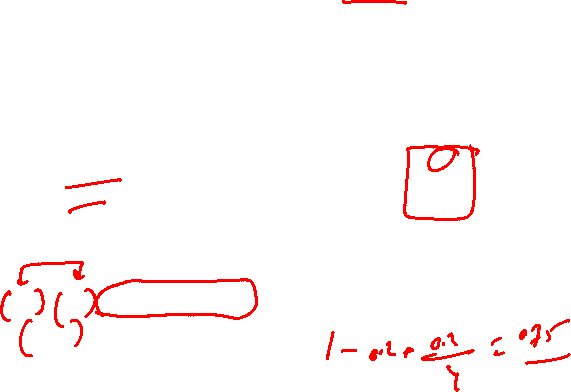 ( ) ( )
( )
1 - 0.2 + 0.2/4 = 0.85